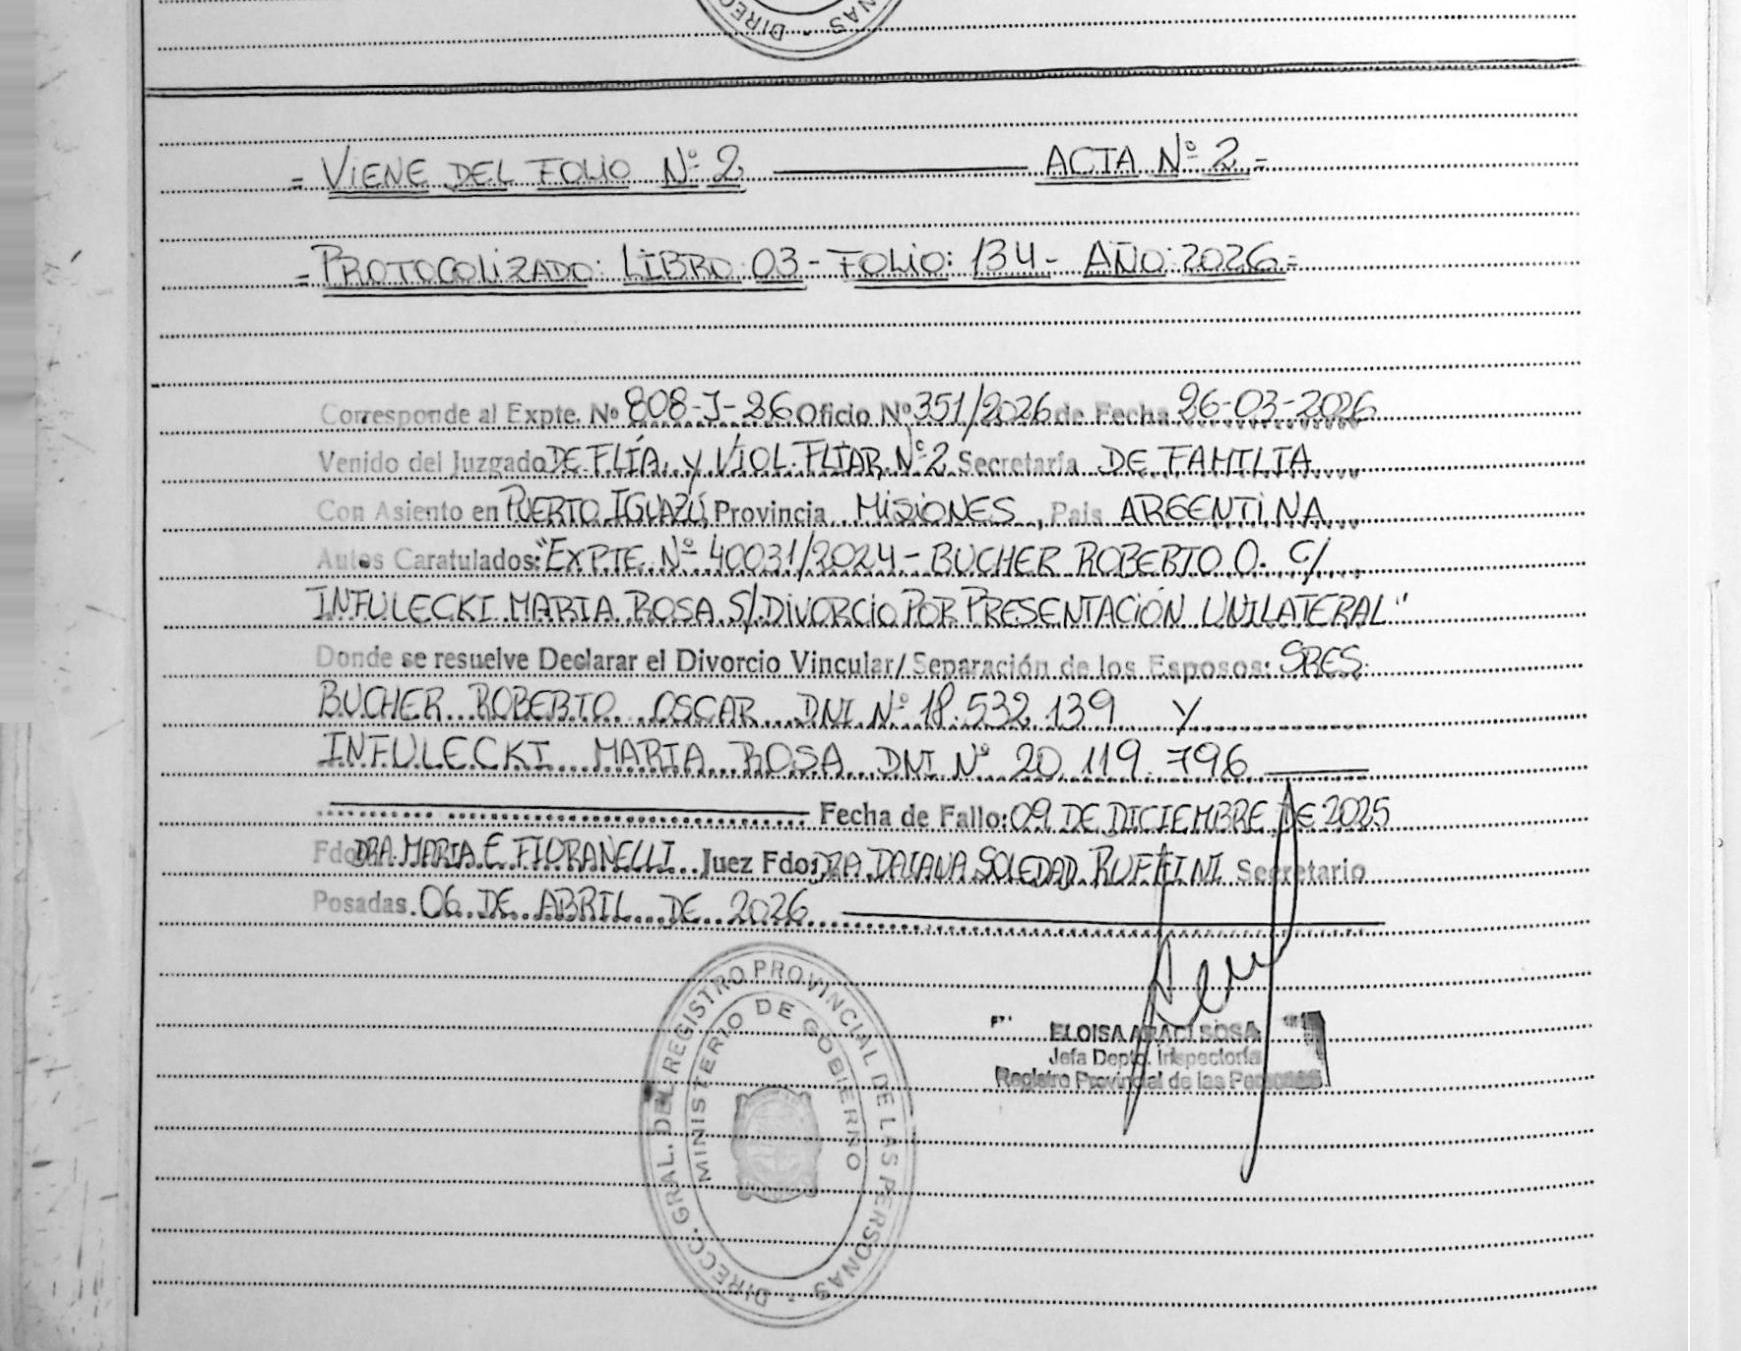 DIRE NAS
= VIENE DEL FOLIO Nº 2 ACTA Nº 2 =
= PROTOCOLIZADO: LIBRO 03 - FOLIO: 134 - AÑO: 2026 =
Corresponde al Expte. Nº 808-J-26 Oficio Nº 351/2026 de Fecha 26-03-2026
Venido del Juzgado DE FLÍA. y VIOL. FLIAR. Nº 2 Secretaría DE FAMILIA
Con Asiento en PUERTO IGUAZÚ, Provincia MISIONES, Pais ARGENTINA
Autos Caratulados: "EXPTE. Nº 40031/2024 - BUCHER ROBERTO O. C/
INFULECKI MARIA ROSA S/ DIVORCIO POR PRESENTACIÓN UNILATERAL"
Donde se resuelve Declarar el Divorcio Vincular/Separación de los Esposos: SRES.
BUCHER ROBERTO OSCAR DNI Nº 18.532.139 Y
INFULECKI MARIA ROSA DNI Nº 20.119.796
Fecha de Fallo: 09 DE DICIEMBRE DE 2025
Fdo: DRA. MARIA E. FIORANELLI Juez Fdo: DRA. DAIANA SOLEDAD RUFFINI Secretario
Posadas. 06 DE ABRIL DE 2026
DIRECC. GRAL. DEL REGISTRO PROVINCIAL DE LAS PERSONAS
MINISTERIO DE GOBIERNO
ELOISA ARACI SOSA
Jefa Depto. Inspectoría
Registro Provincial de las Personas